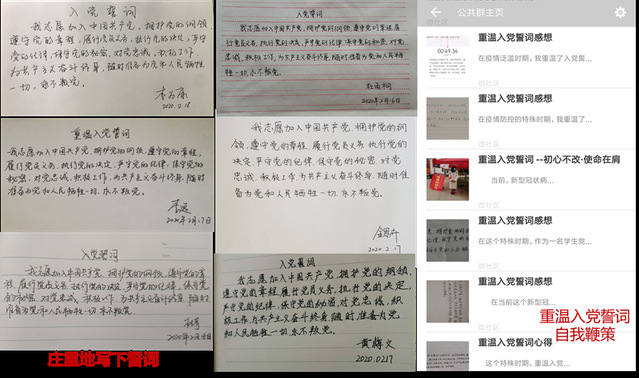 入党誓词
我志愿加入中国共产党，拥护党的纲领
遵守党的章程，履行党员义务，执行党的决定，严守
党的纪律，保守党的秘密，对党忠诚，积极工作，
为共产主义奋斗终身，随时准备为党和人民牺牲
一切，永不叛党。
重温入党誓词
我志愿加入中国共产党，拥护党的纲领，遵守党的章程，
履行党员义务，执行党的决定，严守党的纪律，保守党的
秘密，对党忠诚，积极工作，为共产主义奋斗终身，随时
准备为党和人民牺牲一切，永不叛党。
2020年2月17日
入党誓词
我志愿加入中国共产党，拥护党的纲领，遵守党的章
程，履行党员义务，执行党的决定，严守党的纪律，保守党
的秘密，对党忠诚，积极工作，为共产主义奋斗终身，随时
准备为党和人民牺牲一切，永不叛党。
庄重地写下誓词
入党誓词
我志愿加入中国共产党，拥护党的纲领，遵守党的章程，履
行党员义务，执行党的决定，严守党的纪律，保守党的秘密，对党
忠诚，积极工作，为共产主义奋斗终身，随时准备为党和人民牺
牲一切，永不叛党。
我志愿加入中国共产党，拥护党的纲
领，遵守党的章程，履行党员义务，执行党的
决定，严守党的纪律，保守党的秘密，对党
忠诚，积极工作，为共产主义奋斗终身，随时准
备为党和人民牺牲一切，永不叛党。
2020.2.17
入党誓词
我志愿加入中国共产党，拥护党的纲领，
遵守党的章程，履行党员义务，执行党的决定，
严守党的纪律，保守党的秘密，对党忠诚，积
极工作，为共产主义奋斗终身，随时准备为党
和人民牺牲一切，永不叛党。
黄梅文
2020.0217
公共群主页
微社区
重温入党誓词感想
00:49.36
在疫情泛滥时期，我重温了入党誓...
微社区
重温入党誓词感想
在疫情防控的特殊时期，我重温了...
微社区
重温入党誓词 --初心不改-使命在肩
当前，新型冠状病...
微社区
重温入党誓词感想
在这个特殊时期，作为一名学生党...
微社区
重温入党誓词感想
在当前这个新型冠...
微社区
重温入党誓词心得
在这个特殊时期，重温入党...
重温入党誓词
自我鞭策